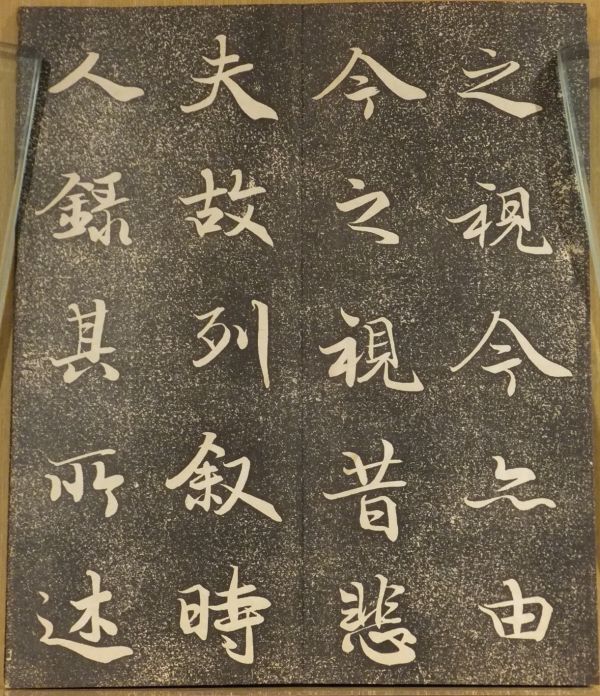 之視今亦由
今之視昔悲
夫故列叙時
人録其所述